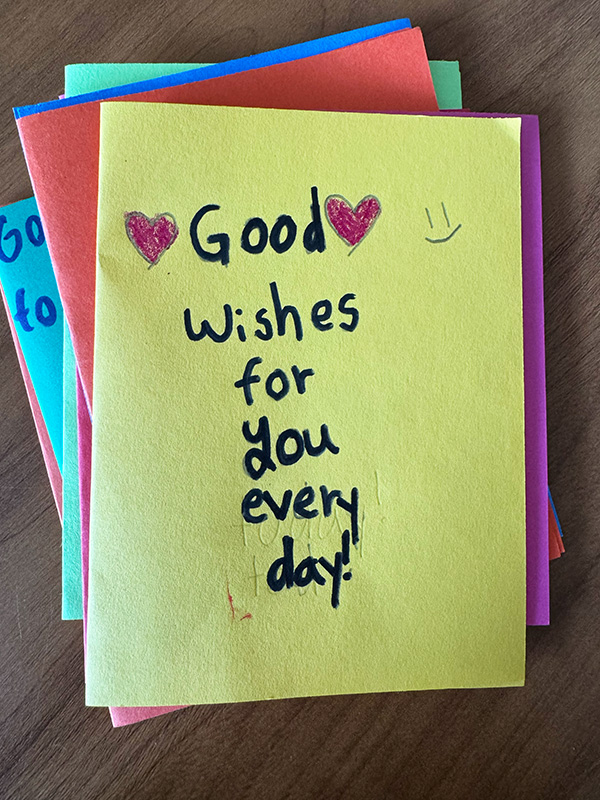 Good
wishes
for
you
every
day!
Go
to